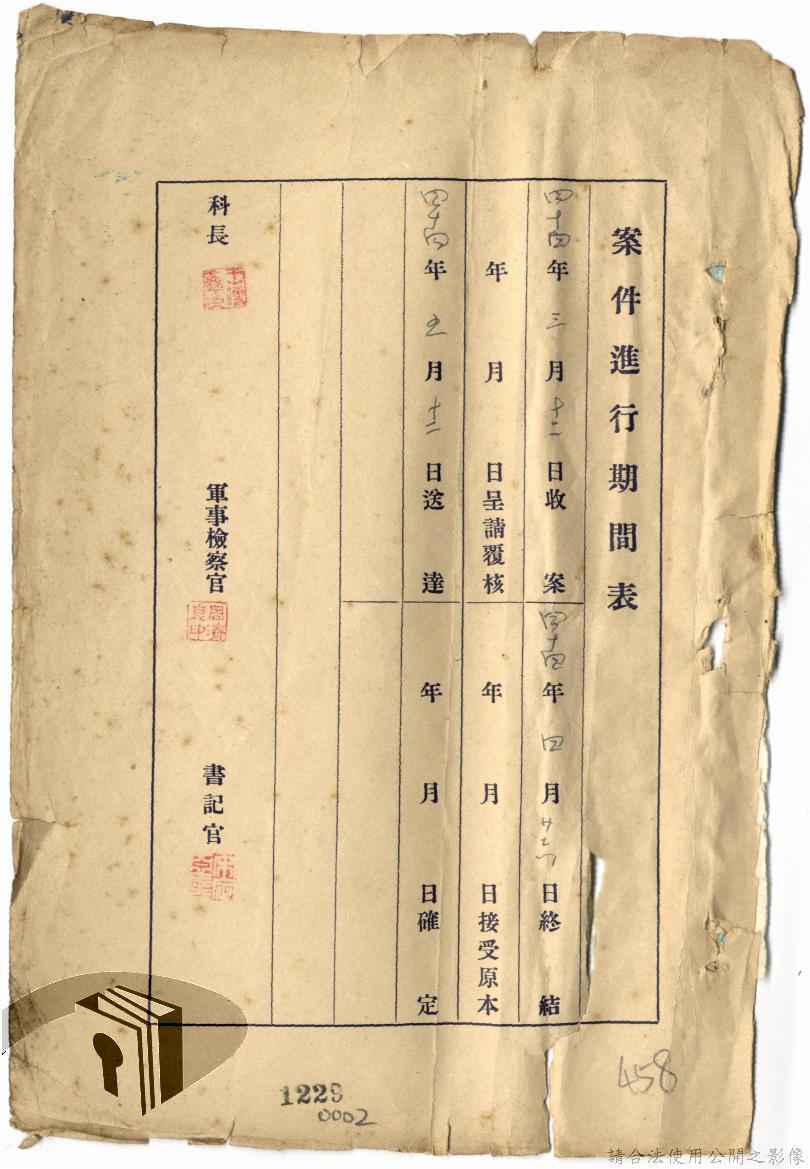 案件進行期間表
四十四年三月十二日收案
四十四年四月廿六日終結
年月日呈請覆核
年月日接受原本
四十四年五月十二日送達
年月日確定
科長
軍事檢察官
書記官
1229
0002
458
請合法使用公開之影像